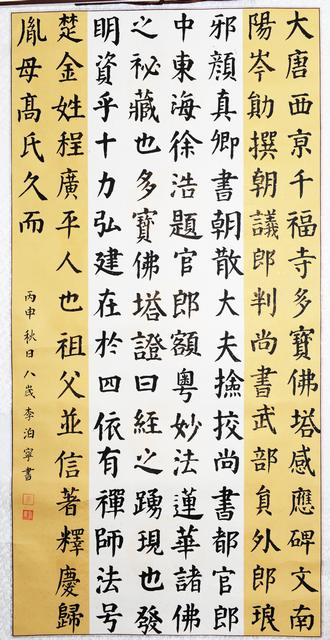 大唐西亰千福寺多寶佛塔感應碑文南
陽岑勛撰朝議郎判尚書武部員外郎琅
邪顏真卿書朝散大夫撿挍尚書都官郎
中東海徐浩題官郎額粵妙法蓮華諸佛
之祕藏也多寶佛塔證曰經之踴現也發
明資乎十力弘建在於四依有禪師法号
楚金姓程廣平人也祖父並信著釋慶歸
胤母髙氏久而
丙申秋日八歲李泊寧書